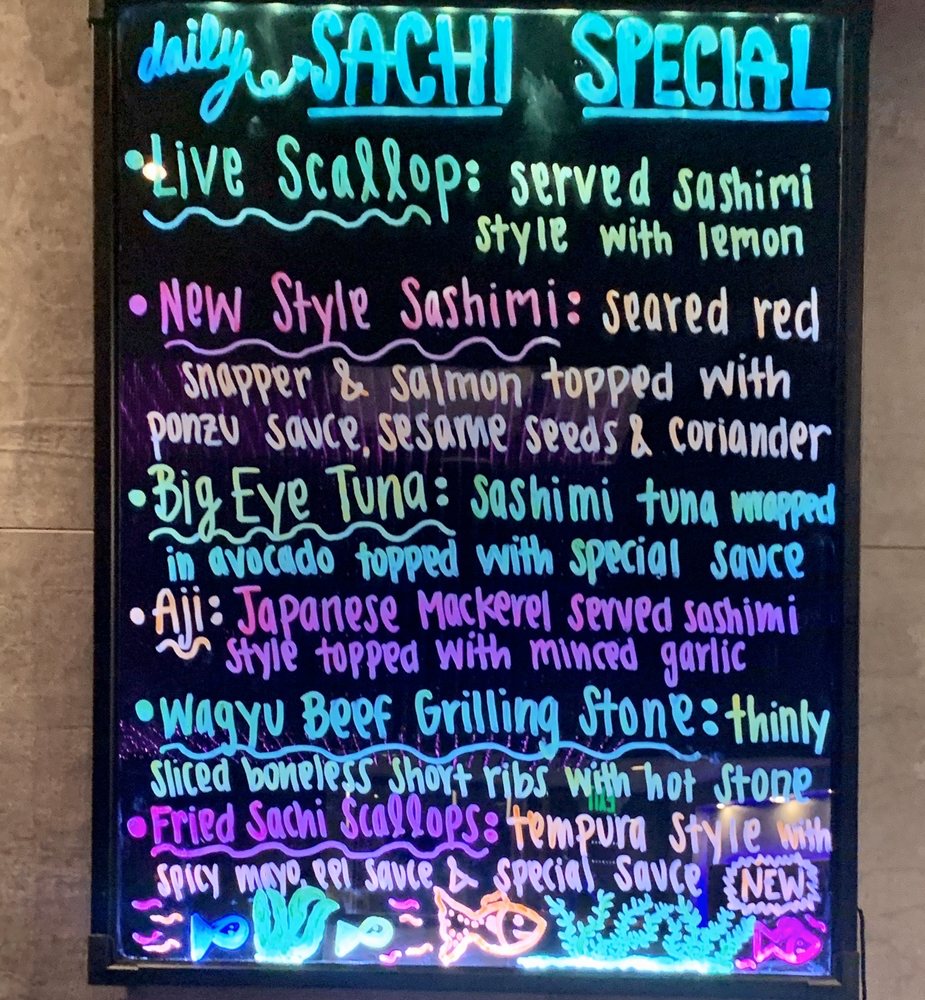 daily SACHI SPECIAL
• Live Scallop: served sashimi
style with lemon
• New Style Sashimi: seared red
snapper & salmon topped with
ponzu sauce, sesame seeds & coriander
• Big Eye Tuna: sashimi tuna wrapped
in avocado topped with special sauce
• Aji: Japanese Mackerel served sashimi
style topped with minced garlic
• Wagyu Beef Grilling Stone: thinly
sliced boneless short ribs with hot stone
• Fried Sachi Scallops: tempura style with
spicy mayo, eel sauce & special sauce NEW